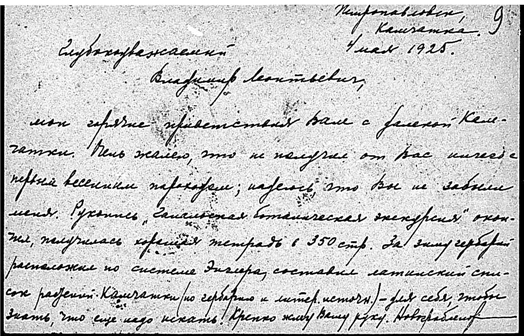 Петропавловск, 9
Камчатка.
4 мая 1925.
Глубокоуважаемый
Владимир Леонтьевич,
мои горячие приветствия Вам с далекой Кам-
чатки. жалею, что не получил от Вас ничего с
первым весенним пароходом; надеюсь, что Вы не забыли
меня. Рукопись „ ботаническая экскурсия" окон-
чил, получилась хорошая тетрадь в 350 стр. За зиму гербарий
расположил по системе Энглера, составил латинский спи-
сок растений Камчатки (по гербарию и литер. источн.) – для себя, чтобы
знать, что еще надо искать! Крепко жму Вашу руку. Новограбленов